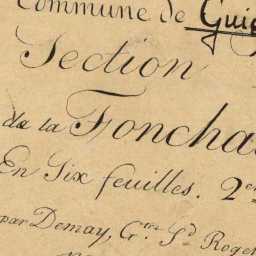 Commune de
Section
de la Foncha
En Six feuilles. 2e
par Demay, G.tre S.d Roger